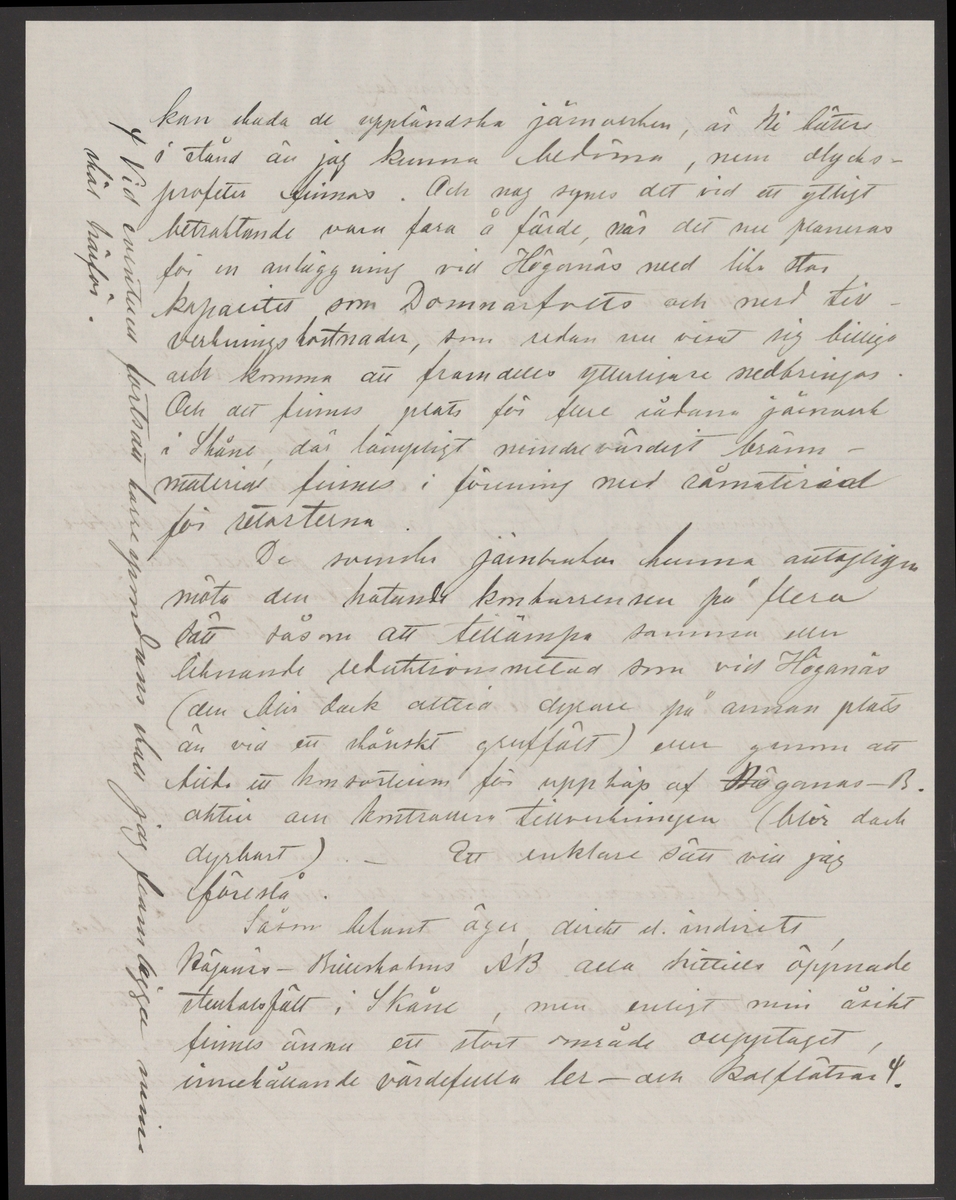 kan skada de uppländska järnverken, är Ni bättre
i stånd än jag kunna bedöma, men olycks-
profeter finnas. Och nog synes det vid ett ytligt
betraktande vara fara å färde, när det nu planeras
för en anläggning vid Höganäs med lika stor
kapacitet som Domnarfvets och med till-
verkningskostnader, som redan nu visat sig billiga
och komma att framdeles ytterligare nedbringas.
Och det finnes plats för flere sådana järnverk
i Skåne, där lämpligt mindrevärdigt bränn-
material finnes i förening med råmaterial
för retorterna.
De svenska järnbruken kunna antagligen
möta den hotande konkurrensen på flera
sätt såsom att tillämpa samma eller
liknande reduktionsmetod som vid Höganäs
(den blir dock alltid dyrare på annan plats
än vid ett skånskt gruffält) eller genom att
bilda ett konsortium för uppköp af Höganäs-B.
aktier och kontrollera tillverkningen (blir dock
dyrbart). – Ett enklare sätt vill jag
föreslå.
Såsom bekant äger, direkt el. indirekt,
Höganäs-Billesholms AB alla hittills öppnade
stenkolsfält i Skåne, men enligt min åsikt
finnes ännu ett stort område oupptaget,
innehållande värdefulla ler- och kolflötsar 4.
4 Vid eventuell fortsatt korrespondans skall jag framlägga mina
skäl härför.